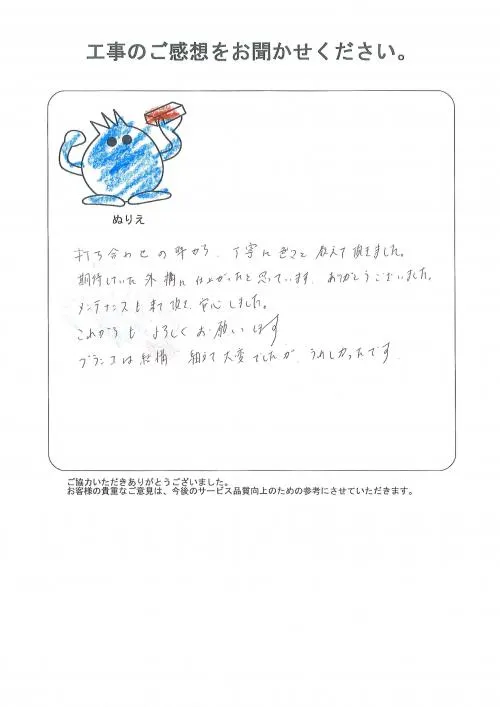 工事のご感想をお聞かせください。
ぬりえ
打ち合わせの時から、丁寧に 教えて頂きました。
期待していた外構に仕上がったと思っています。ありがとうございました。
メンテナンスも来て頂き、安心しました。
これからも よろしく お願いします
ブランコは結構 大変でしたが、うれしかったです。
ご協力いただきありがとうございました。
お客様の貴重なご意見は、今後のサービス品質向上のための参考にさせていただきます。